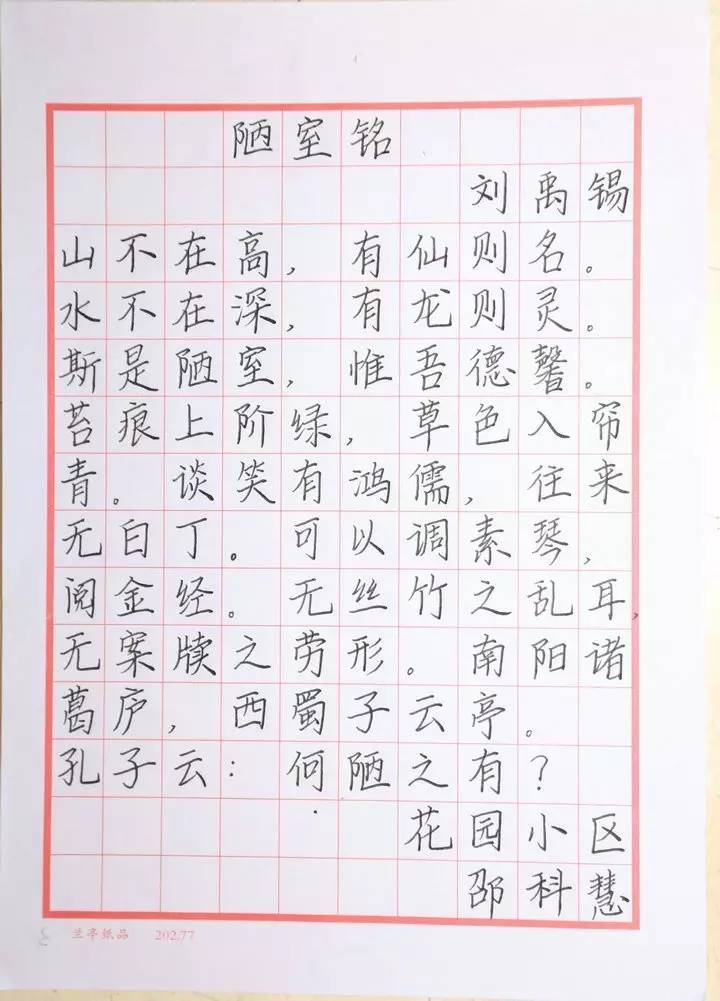 陋室铭
刘禹锡
山不在高，有仙则名。
水不在深，有龙则灵。
斯是陋室，惟吾德馨。
苔痕上阶绿，草色入帘
青。谈笑有鸿儒，往来
无白丁。可以调素琴，
阅金经。无丝竹之乱耳，
无案牍之劳形。南阳诸
葛庐，西蜀子云亭。
孔子云：何陋之有？
花园小区
邵科慧
兰亭纸品 202.77